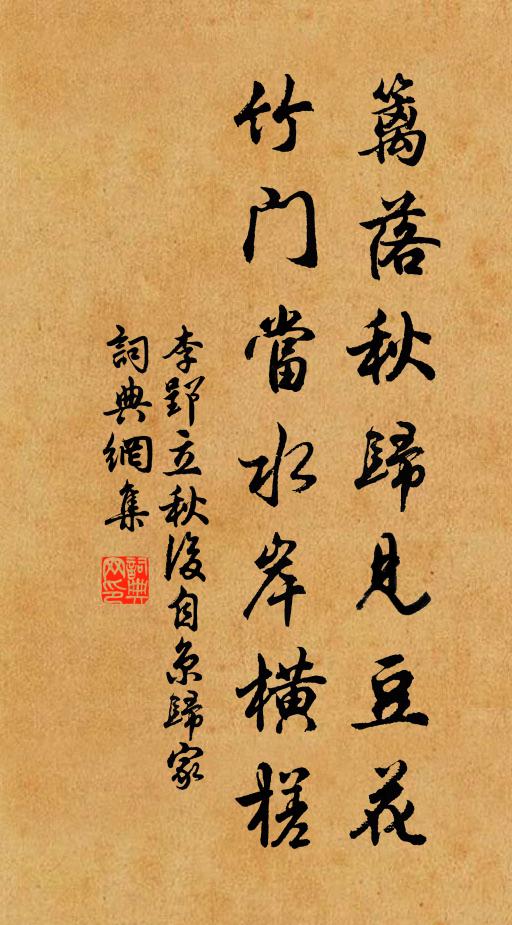 篱落秋歸見豆花
竹门當水岸橫槎
李郢立秋後自京歸家
詞典網集
詞典网印